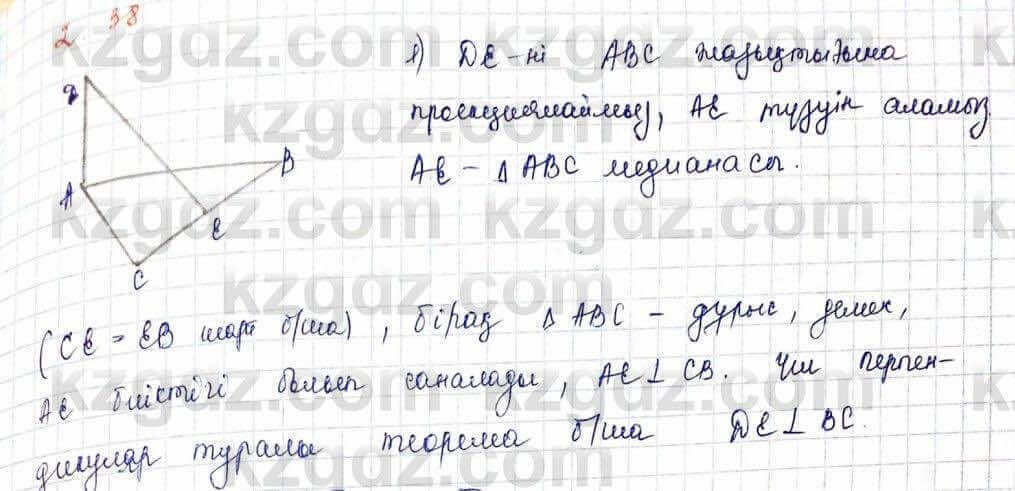 2. 38
1) DE-ні ABC жазықтығына
проекциялаймыз, AE түзуін аламыз.
AE - Δ ABC медианасы.
D
A
B
E
C
(CE = EB шарт б/ша), бірақ Δ ABC - дұрыс, демек,
AE биіктігі болып саналады, AE⊥CB. Үш перпен-
дикуляр туралы теорема б/ша DE⊥BC.
kzgdz.com